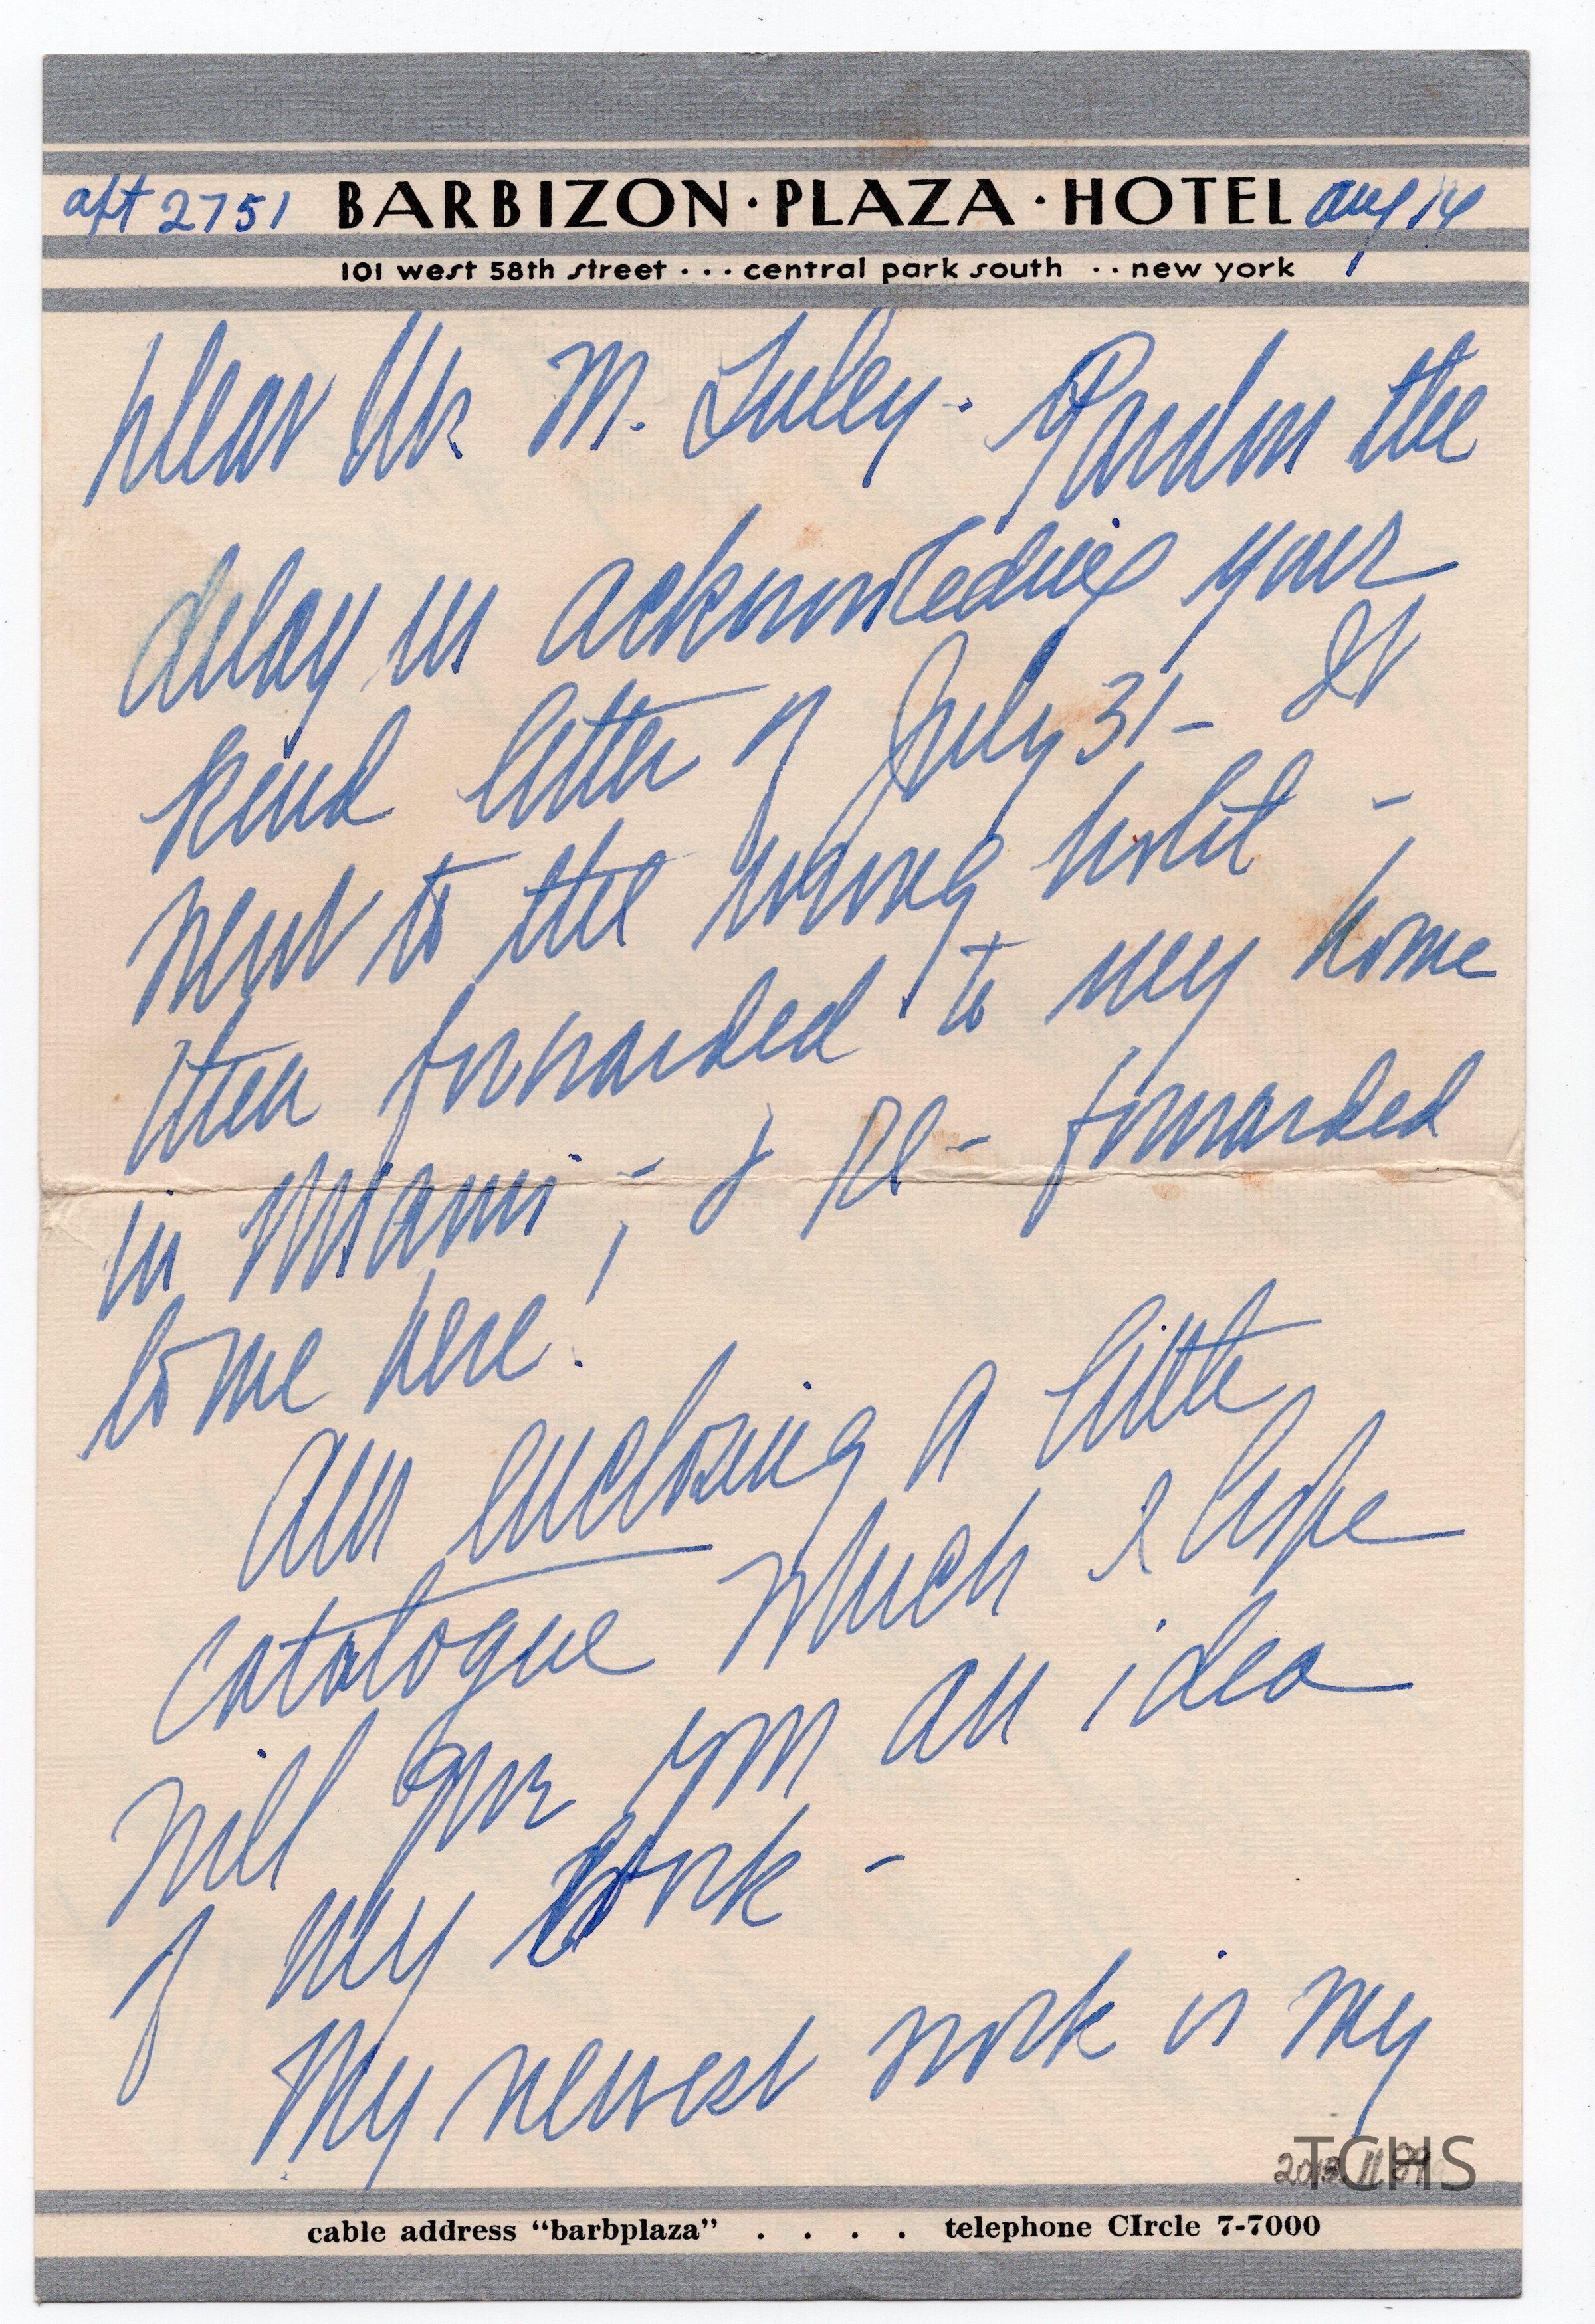 apt 2751 BARBIZON · PLAZA · HOTEL Aug 14
101 west 58th street · · · central park south · · new york
Dear Mr M. Tuley - Pardon the
delay in acknowledging your
kind letter of July 31 - It
went to the wrong hotel - ,
then forwarded to my home
in Miami - , & re - forwarded
to me here!
Am enclosing a little
catalogue which I hope
will give you an idea
of my work -
My newest work is my
2013.11.
TCHS
cable address “barbplaza” . . . . telephone CIrcle 7-7000